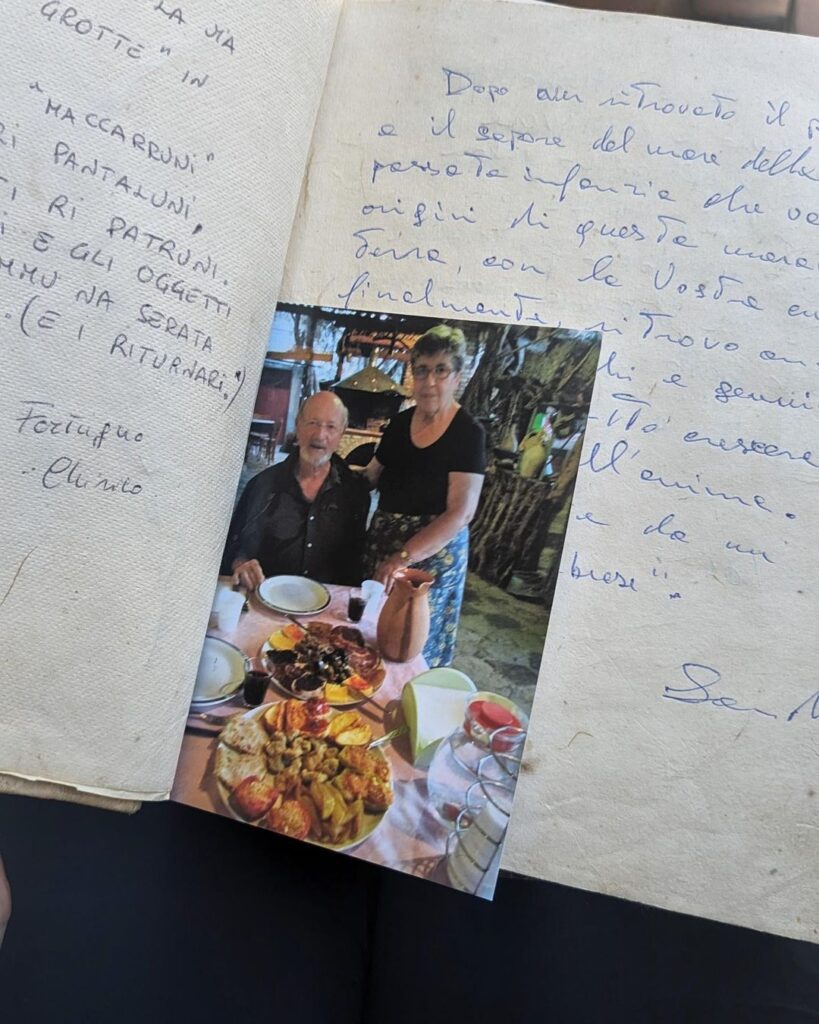 LA VIA
GROTTE" IN
"MACCARRUNI"
RI PANTALUNI,
TI RI PATRUNI.
I E GLI OGGETTI
MMU NA SERATA
.(E I RITURNARI.")
Fortugno
Dopo aver ritrovato il
e il sapore del mare della
passata infanzia che
origini di questa
terra, con la Vostra
finalmente, ritrovo
e
crescere
ll'anima.
e da un
brese".